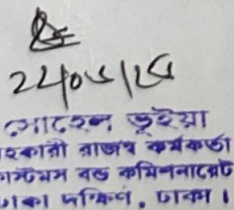 ২২/০৫/২৫
সোহেল ভূইয়া
সহকারী রাজস্ব কর্মকর্তা
কাস্টমস বন্ড কমিশনারেট
ঢাকা দক্ষিণ, ঢাকা।